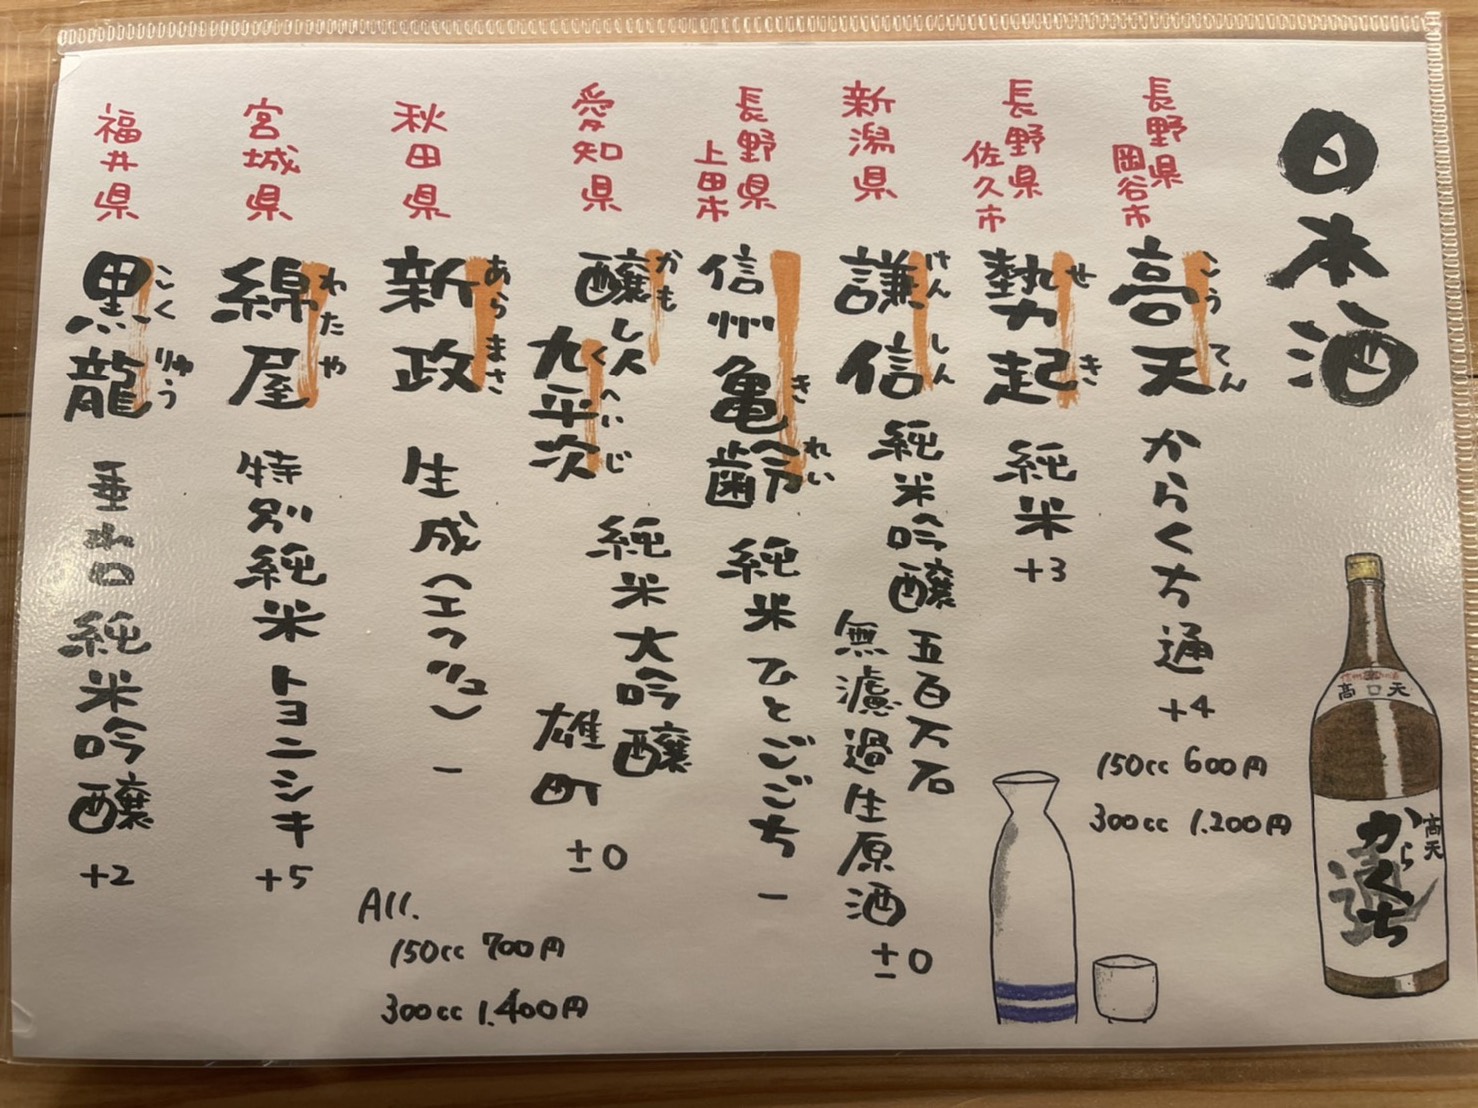 日本酒
長野県
岡谷市
高天
こうてん
からくち通
+4
150cc 600円
300cc 1.200円
長野県
佐久市
勢起
せき
純米
+3
新潟県
謙信
けんしん
純米吟醸
五百万石
無濾過生原酒
±0
長野県
上田市
信州亀齢
きれい
純米 ひとごごち
ー
愛知県
醸し人
かも
九平次
くへいじ
純米大吟醸
雄町
±0
秋田県
新政
あらまさ
生成(エクリュ)
ー
宮城県
綿屋
わたや
特別純米 トヨニシキ
+5
福井県
黒龍
こくりゅう
垂れ口 純米吟醸
+2
All.
150cc 700円
300cc 1.400円
高口天
高天
からくち